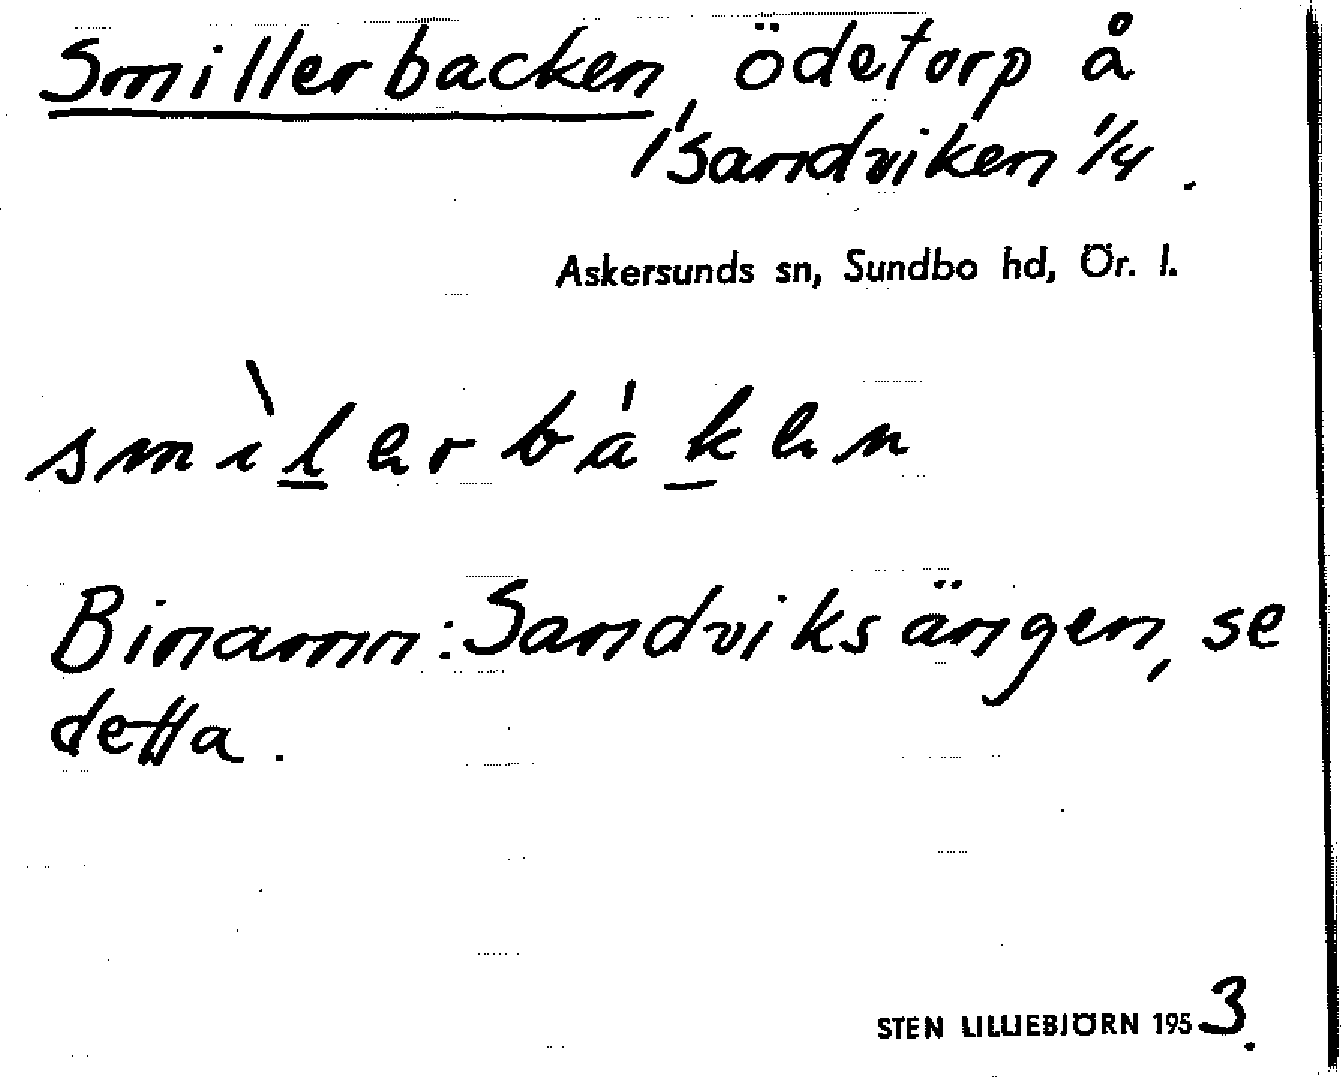 Smillerbacken, ödetorp å
/Sandviken 1/4.
Askersunds sn, Sundbo hd, Ör. l.
smìlerbáken
Binamn: Sandviksängen, se
detta.
STEN LILLIEBJÖRN 1953.